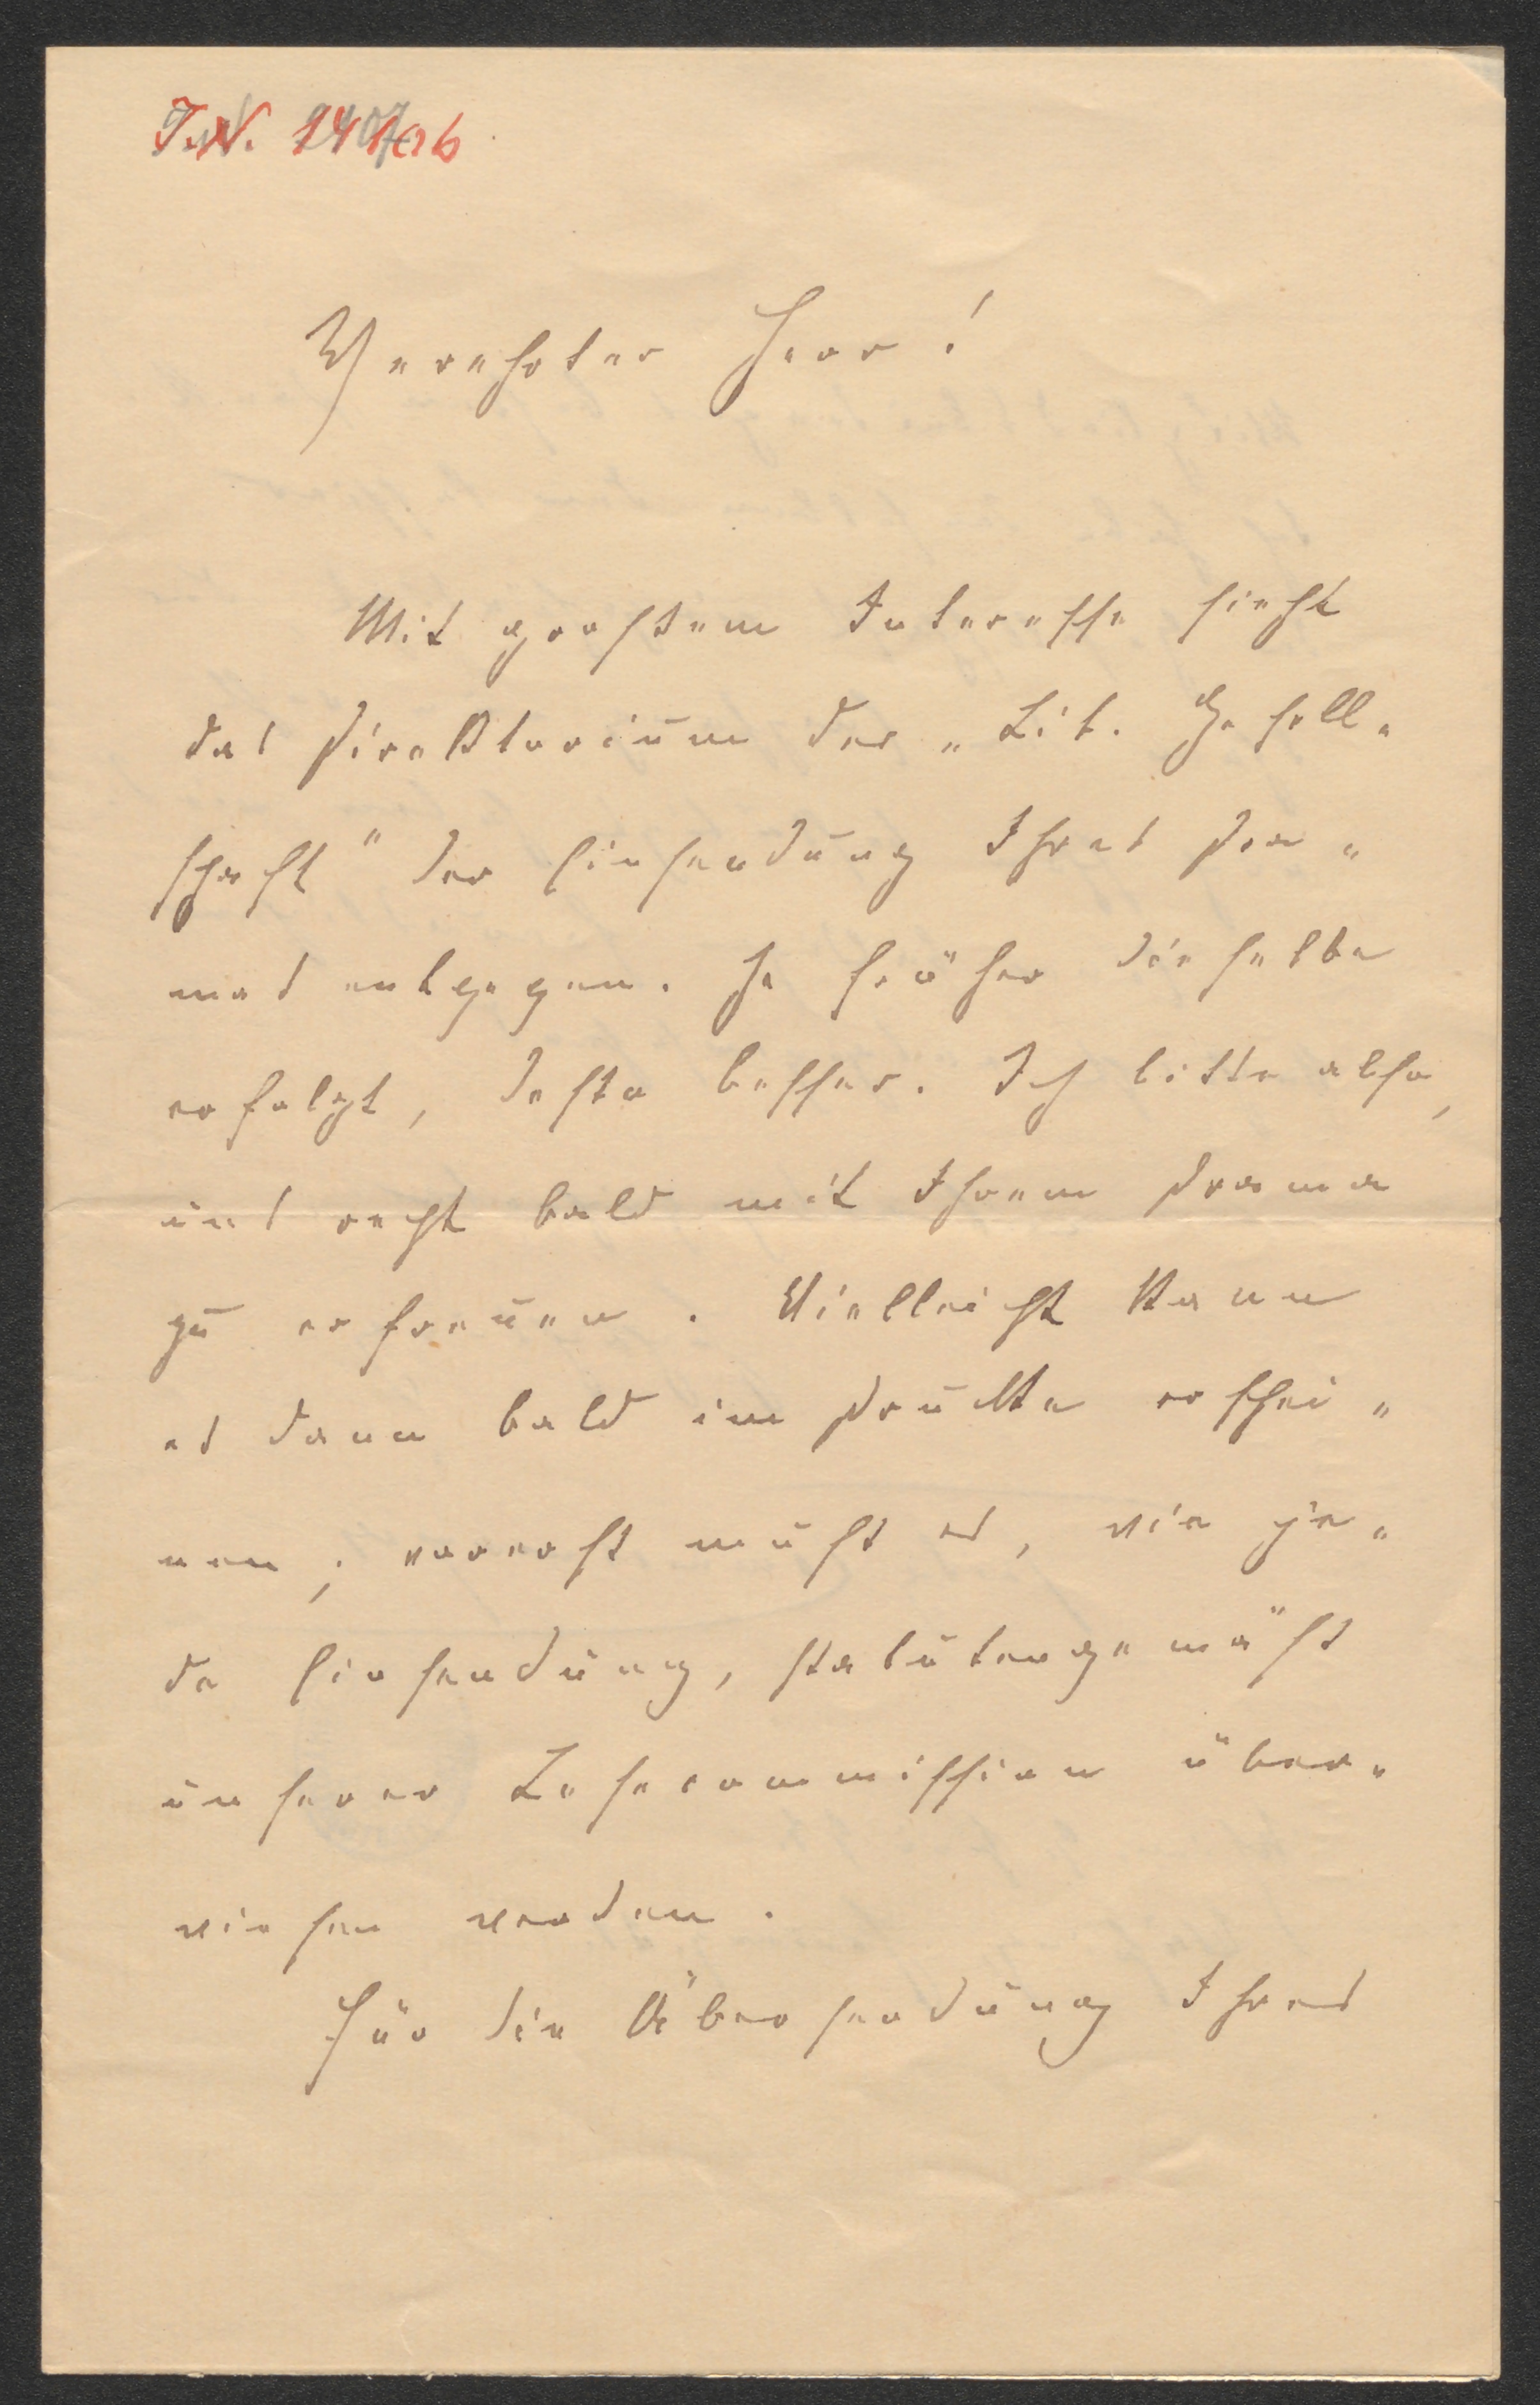 Verehrter Herr!
Mit grosstem Interesse sieht
das Direktorium der „Lit. Gesell-
schaft" der Einsendung Ihres Dra-
mas entgegen. Je früher dieselbe
erfolgt, desto besser. Ich bitte also,
uns recht bald mit Ihrem Drama
zu erfreuen. Vielleicht kann
es dann bald im Drucke erschei-
nen; vorerst muss es, wie je-
de Einsendung, statutengemäss
unserer Lesecommission über-
wiesen werden.
Für die Übersendung Ihres